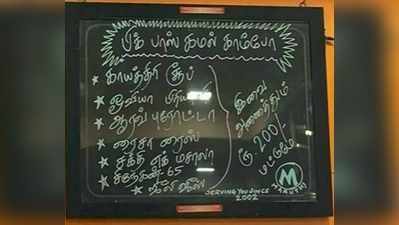 பிக் பாஸ் கமல் காம்போ
காயத்திரி சூப்
ஓவியா பிரியாணி
ஆரவ் புரோட்டா
ரைசா ரைஸ்
சக்தி எக் மசாலா
சினேகன் 65
ஜூஸ்
இவை
அனைத்தும்
ரூ. 200/-
மட்டுமே
M
MARUTHI
SERVING YOU SINCE
2002